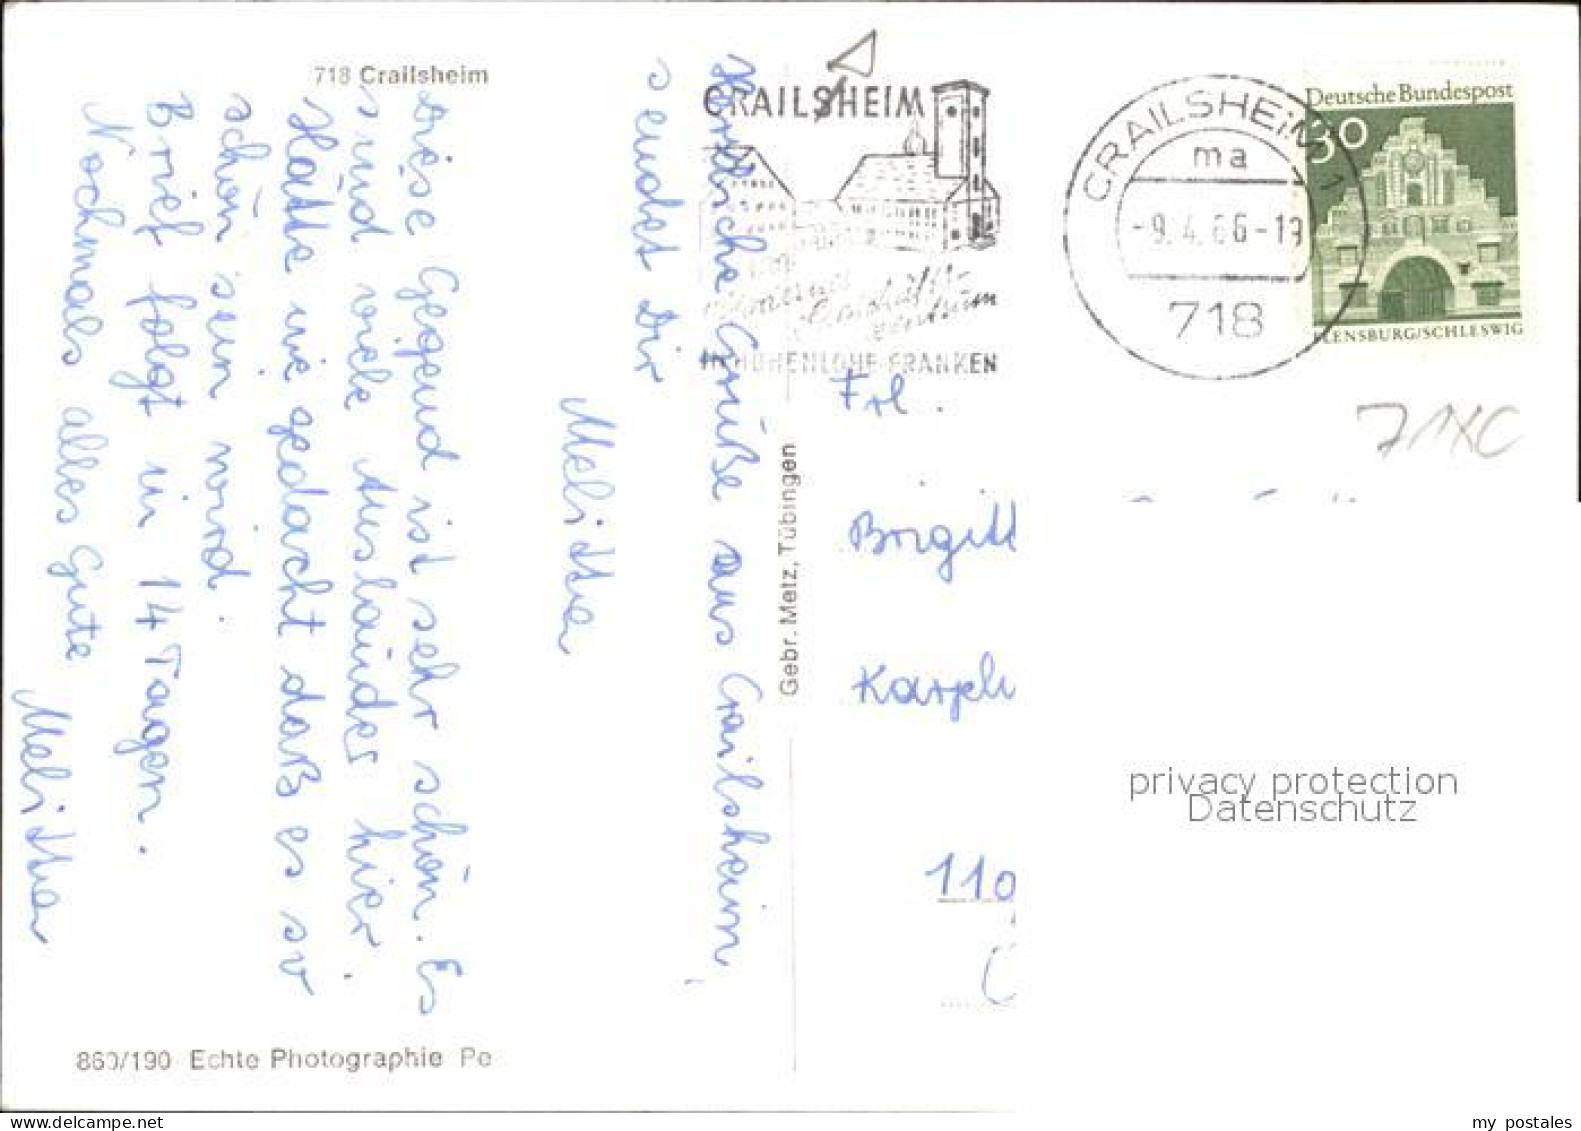 718 Crailsheim
Herzliche Grüße aus Crailsheim,
sendet Dir
Melitta
Diese Gegend ist sehr schön. Es
sind viele Ausländer hier.
Hätte nie gedacht daß es so
schön sein wird.
Brief folgt in 14 Tagen.
Nochmals alles Gute
Melitta
860/190 Echte Photographie Pe
Gebr. Metz, Tübingen
CRAILSHEIM
zentrum
IN HOHENLOHE-FRANKEN
CRAILSHEIM 1
ma
-9.4.66-19
718
Deutsche Bundespost
30
FLENSBURG/SCHLESWIG
Frl.
Brigitt
110
privacy protection
Datenschutz
my postales